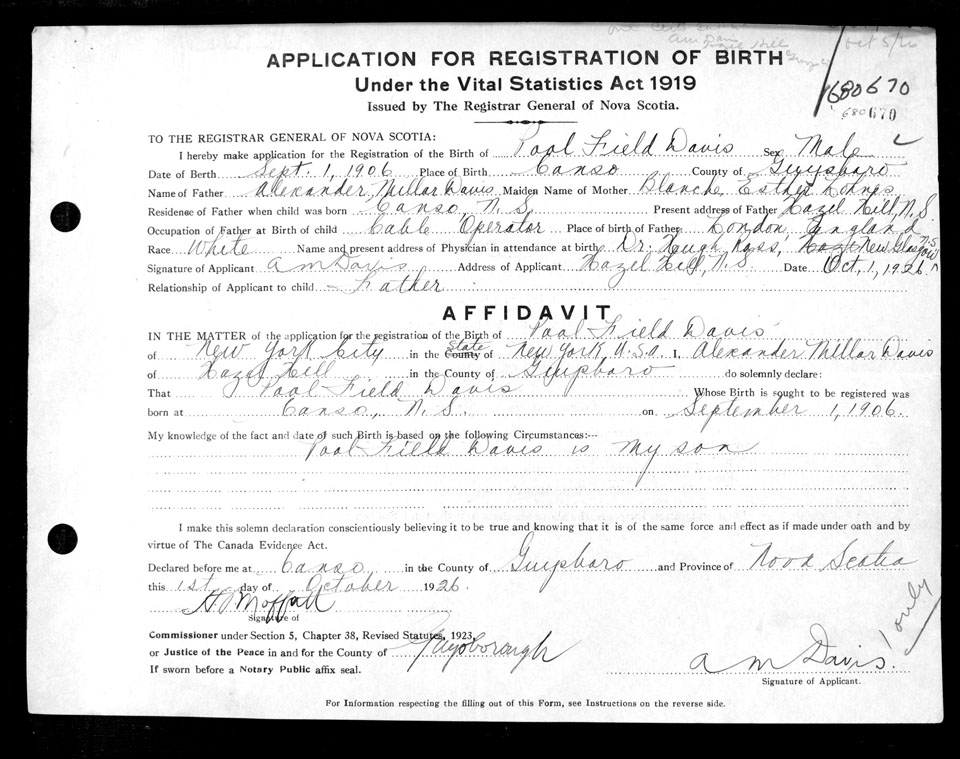 Oct 5/26
APPLICATION FOR REGISTRATION OF BIRTH
Under the Vital Statistics Act 1919
Issued by The Registrar General of Nova Scotia.
680670
680670
TO THE REGISTRAR GENERAL OF NOVA SCOTIA:
I hereby make application for the Registration of the Birth of Pool Field Davis Sex Male
Date of Birth Sept. 1, 1906 Place of Birth Canso County of Guysboro
Name of Father Alexander Millar Davis Maiden Name of Mother Blanche Esther Lohnes
Residense of Father when child was born Canso, N.S. Present address of Father Hazel Hill, N.S.
Occupation of Father at Birth of child Cable Operator Place of birth of Father London, England
Race White Name and present address of Physician in attendance at birth Dr. Hugh Ross, New Glasgow N.S.
Signature of Applicant A M Davis Address of Applicant Hazel Hill, N.S. Date Oct, 1, 1926.
Relationship of Applicant to child Father
AFFIDAVIT
IN THE MATTER of the application for the registration of the Birth of Pool Field Davis
of New York City in the County State of New York, U.S.A. I, Alexander Millar Davis
of Hazel Hill in the County of Guysboro do solemnly declare:
That Pool Field Davis Whose Birth is sought to be registered was
born at Canso, N.S. on September 1, 1906.
My knowledge of the fact and date of such Birth is based on the following Circumstances:--
Pool Field Davis is my son
I make this solemn declaration conscientiously believing it to be true and knowing that it is of the same force and effect as if made under oath and by
virtue of The Canada Evidence Act.
Declared before me at Canso in the County of Guysboro and Province of Nova Scotia
this 1st day of October 1926.
Moffatt
Signature of
Commissioner under Section 5, Chapter 38, Revised Statutes, 1923,
or Justice of the Peace in and for the County of Guysborough
If sworn before a Notary Public affix seal.
A M Davis.
1 only
Signature of Applicant.
For Information respecting the filling out of this Form, see Instructions on the reverse side.